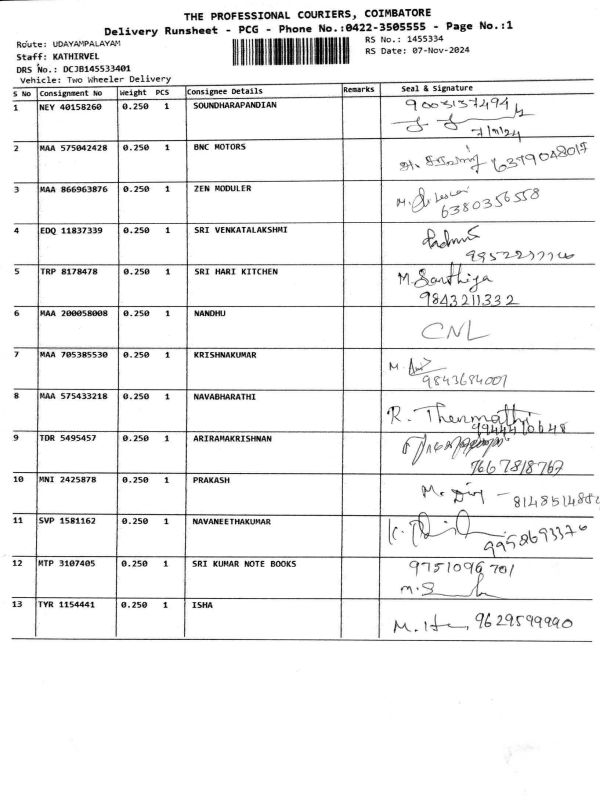 THE PROFESSIONAL COURIERS, COIMBATORE
Delivery Runsheet - PCG - Phone No.:0422-3505555 - Page No.:1
Route: UDAYAMPALAYAM
RS No.: 1455334
Staff: KATHIRVEL
RS Date: 07-Nov-2024
DRS No.: DCJB145533401
Vehicle: Two Wheeler Delivery
S No Consignment No Weight PCS Consignee Details Remarks Seal & Signature
1 NEY 40158260 0.250 1 SOUNDHARAPANDIAN 9003137494
7/11/24
2 MAA 575042428 0.250 1 BNC MOTORS 6379048017
3 MAA 866963876 0.250 1 ZEN MODULER M.
6380356558
4 EDQ 11837339 0.250 1 SRI VENKATALAKSHMI
5 TRP 8178478 0.250 1 SRI HARI KITCHEN M. Santhiya
9843211332
6 MAA 200058008 0.250 1 NANDHU CNL
7 MAA 705385530 0.250 1 KRISHNAKUMAR M.
9843684007
8 MAA 575433218 0.250 1 NAVABHARATHI R. Thenmathi
9944410648
9 TDR 5495457 0.250 1 ARIRAMAKRISHNAN
7667818767
10 MNI 2425878 0.250 1 PRAKASH M. - 814851488
11 SVP 1581162 0.250 1 NAVANEETHAKUMAR K.
9958693376
12 MTP 3107405 0.250 1 SRI KUMAR NOTE BOOKS 9751096701
M. S
13 TYR 1154441 0.250 1 ISHA M. 9629599990